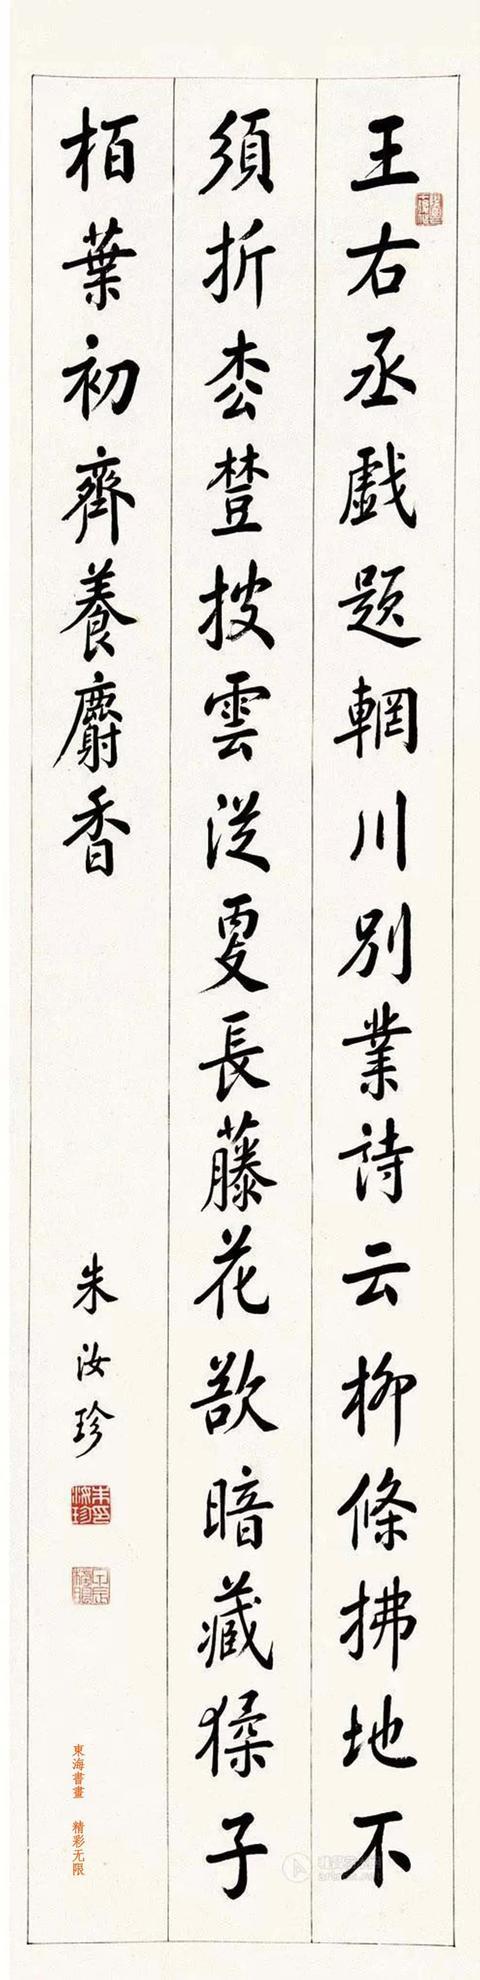 王右丞戲題輞川別業詩云柳條拂地不
須折枩䔲披雲從更長藤花欲暗藏猱子
栢葉初齊養麝香
朱汝珍
東海書畫 精彩无限